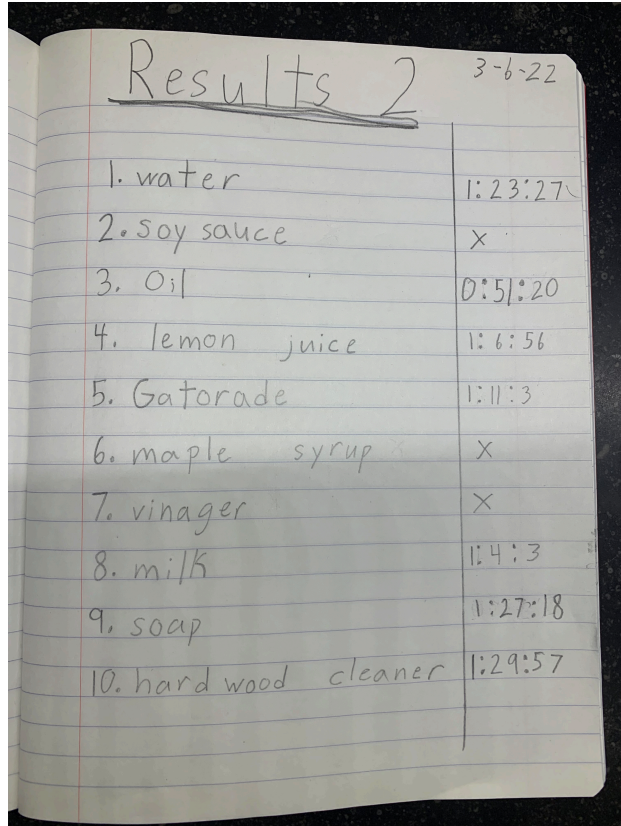 Results 2 3-6-22
1. water 1:23:27
2. soy sauce X
3. Oil 0:51:20
4. lemon juice 1:6:56
5. Gatorade 1:11:3
6. maple syrup X
7. vinager X
8. milk 1:4:3
9. soap 1:27:18
10. hard wood cleaner 1:29:57